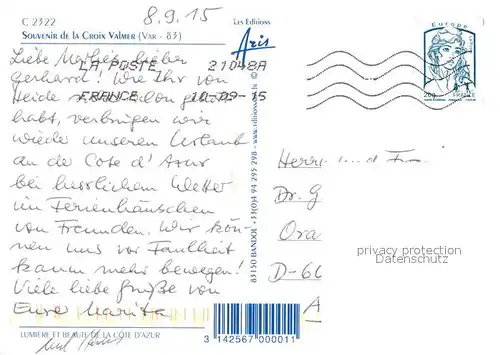 8.9.15
C 2322
SOUVENIR DE LA CROIX VALMER (VAR - 83)
Les Editions
Aris
Europe
20g FRANCE
LA POSTE 21048A
FRANCE 10-09-15
Liebe lieber
Gerhard! Wie Ihr von
Heide schon gehört
habt, verbringen wir
wieder unseren Urlaub
an der Cote d'Azur
bei herrlichem Wetter
im Ferienhäuschen
von Freunden. Wir kön-
nen uns vor Faulheit
kaum mehr bewegen!
Viele liebe Grüße von
Eure Marita
und
83150 BANDOL - 33(0)4 94 295 298 -
Herrn und
Dr. G
Ora
D-66
privacy protection
Datenschutz
LUMIERE ET BEAUTE DE LA CÔTE D'AZUR
3 142567 000011